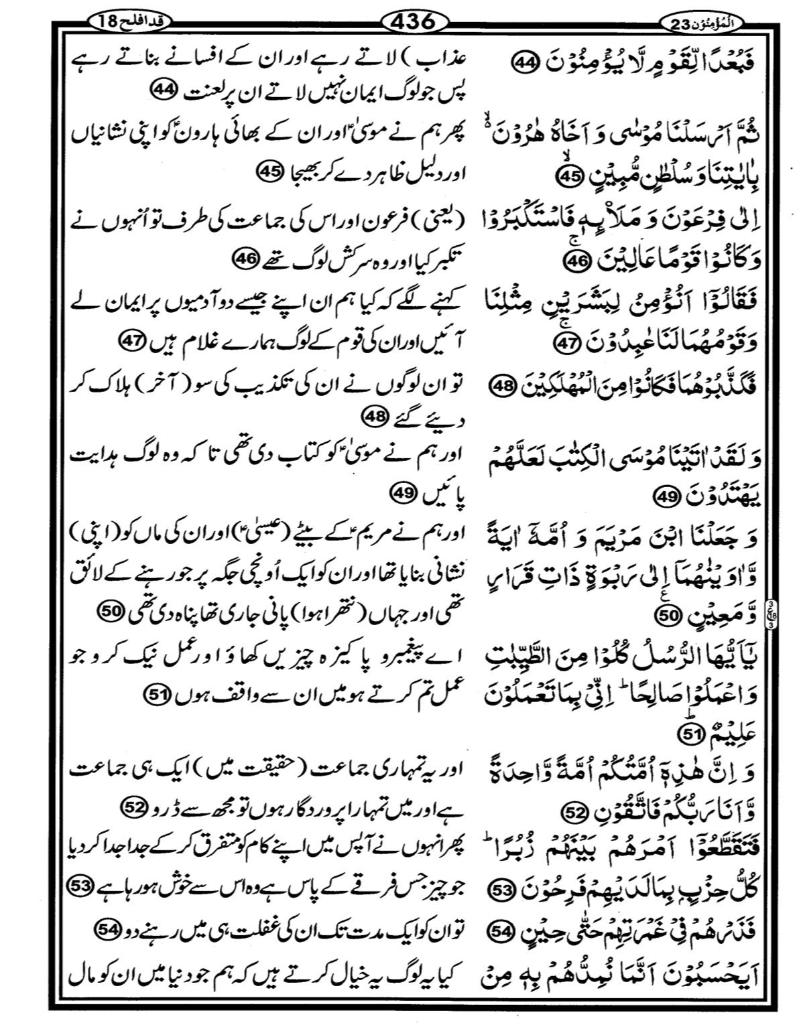 اَلْمُؤْمِنُوْن 23
436
قد افلح 18
فَبُعْدًا لِّقَوْمٍ لَّا يُؤْمِنُوْنَ 44
ثُمَّ اَرْسَلْنَا مُوْسٰى وَ اَخَاهُ هٰرُوْنَ ۙ
بِاٰيٰتِنَا وَ سُلْطٰنٍ مُّبِيْنٍ ۙ 45
اِلٰى فِرْعَوْنَ وَ مَلَا۟ئِهٖ فَاسْتَكْبَرُوْا
وَ كَانُوْا قَوْمًا عَالِيْنَ ۚ 46
فَقَالُوْۤا اَنُؤْمِنُ لِبَشَرَيْنِ مِثْلِنَا
وَ قَوْمُهُمَا لَنَا عٰبِدُوْنَ ۚ 47
فَكَذَّبُوْهُمَا فَكَانُوْا مِنَ الْمُهْلَكِيْنَ 48
وَ لَقَدْ اٰتَيْنَا مُوْسَى الْكِتٰبَ لَعَلَّهُمْ
يَهْتَدُوْنَ 49
وَ جَعَلْنَا ابْنَ مَرْيَمَ وَ اُمَّهٗۤ اٰيَةً
وَّ اٰوَيْنٰهُمَاۤ اِلٰى رَبْوَةٍ ذَاتِ قَرَارٍ
وَّ مَعِيْنٍ ع 50
يٰۤاَيُّهَا الرُّسُلُ كُلُوْا مِنَ الطَّيِّبٰتِ
وَ اعْمَلُوْا صَالِحًا ؕ اِنِّيْ بِمَا تَعْمَلُوْنَ
عَلِيْمٌ ؕ 51
وَ اِنَّ هٰذِهٖۤ اُمَّتُكُمْ اُمَّةً وَّاحِدَةً
وَّ اَنَا رَبُّكُمْ فَاتَّقُوْنِ 52
فَتَقَطَّعُوْۤا اَمْرَهُمْ بَيْنَهُمْ زُبُرًا ؕ
كُلُّ حِزْبٍۭ بِمَا لَدَيْهِمْ فَرِحُوْنَ 53
فَذَرْهُمْ فِيْ غَمْرَتِهِمْ حَتّٰى حِيْنٍ 54
اَيَحْسَبُوْنَ اَنَّمَا نُمِدُّهُمْ بِهٖ مِنْ
عذاب) لاتے رہے اور ان کے افسانے بناتے رہے
پس جو لوگ ایمان نہیں لاتے ان پر لعنت 44
پھر ہم نے موسیٰؑ اور ان کے بھائی ہارونؑ کو اپنی نشانیاں
اور دلیل ظاہر دے کر بھیجا 45
(یعنی) فرعون اور اس کی جماعت کی طرف تو اُنہوں نے
تکبر کیا اور وہ سرکش لوگ تھے 46
کہنے لگے کہ کیا ہم ان اپنے جیسے دو آدمیوں پر ایمان لے
آئیں اور ان کی قوم کے لوگ ہمارے غلام ہیں 47
تو ان لوگوں نے ان کی تکذیب کی سو (آخر) ہلاک کر
دیئے گئے 48
اور ہم نے موسیٰؑ کو کتاب دی تھی تاکہ وہ لوگ ہدایت
پائیں 49
اور ہم نے مریمؑ کے بیٹے (عیسیٰؑ) اور ان کی ماں کو (اپنی)
نشانی بنایا تھا اور ان کو ایک اُونچی جگہ پر جو رہنے کے لائق
تھی اور جہاں (نتھرا ہوا) پانی جاری تھا پناہ دی تھی 50
اے پیغمبرو پاکیزہ چیزیں کھاؤ اور عمل نیک کرو جو
عمل تم کرتے ہو میں ان سے واقف ہوں 51
اور یہ تمہاری جماعت (حقیقت میں) ایک ہی جماعت
ہے اور میں تمہارا پروردگار ہوں تو مجھ سے ڈرو 52
پھر انہوں نے آپس میں اپنے کام کو متفرق کرکے جدا جدا کر دیا
جو چیز جس فرقے کے پاس ہے وہ اس سے خوش ہو رہا ہے 53
تو ان کو ایک مدت تک ان کی غفلت ہی میں رہنے دو 54
کیا یہ لوگ یہ خیال کرتے ہیں کہ ہم جو دنیا میں ان کو مال